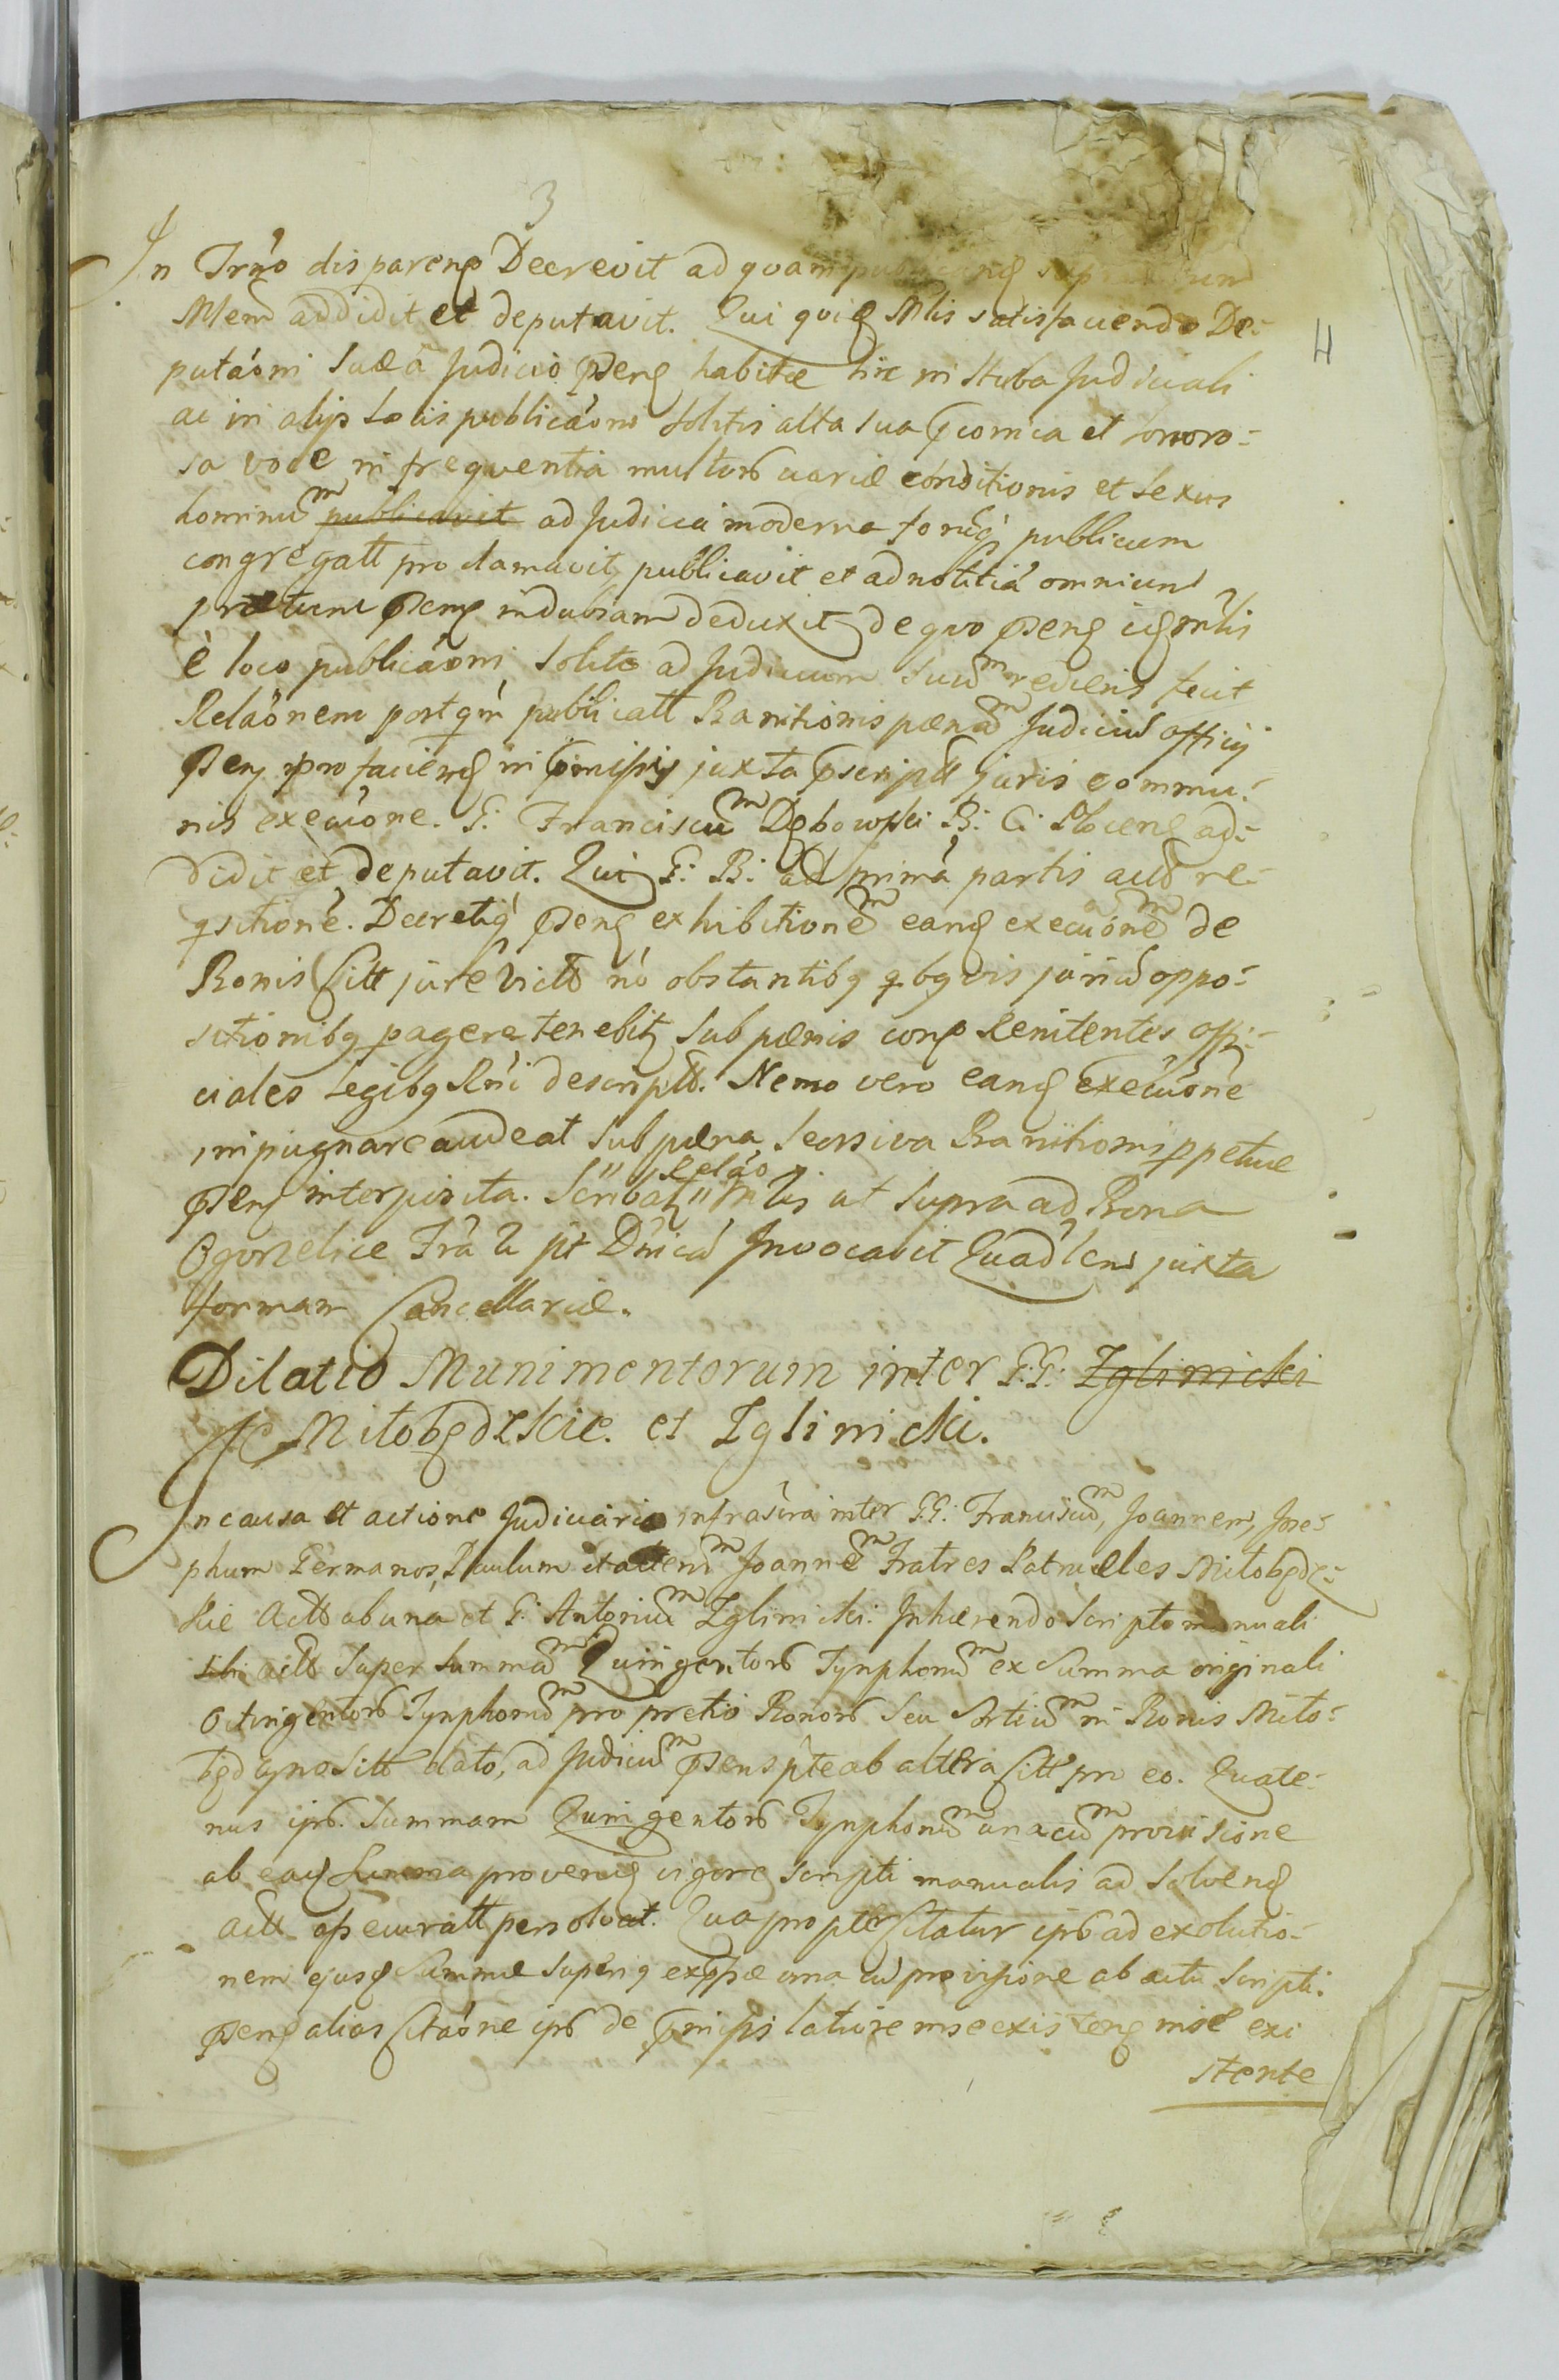 3
4
In Trno disparen Decrevit ad quam
Mlem addidit et deputavit. Qui quid Mlis satisfaciendo De-
putaoni suæ a Judicio psens habitæ hic in Stuba Judiciali
ac in alijs locis publicaoni solitis alta sua pconica et sonoro-
sa voce in frequentia multorum variæ conditionis et sexus
hominum publicavit ad Judicia moderna forumq publicum
congregatt proclamavit, publicavit et ad notitiam omnium
psens indubiam deduxit de quo psens idem mlis
è loco publicaoni solito ad Judicium suum rediens fecit
Relaonem post qm publicatt Banitionis pænam Judicium officij
psens pro faciend in pmissis juxta pscript juris commu-
nis execuone. G: Franciscum Dębowski B: C: Plocens ad-
didit et deputavit. Qui G: B: ad primam partis act re-
qsitione. Decretiq psens exhibitionem eand execuonem de
Bonis Citt jure vict no obstantibq qbqvis juriu oppo-
sitionibq pagere tenebitur sub pænis con Renitentes offi-
ciales legibq Rni descript. Nemo vero eand execuone
impugnare audeat sub pæna seorsiva Banitioni ppetuæ
psens interposita. Scribatur "Relao" Mlis ut supra ad Bona
Ogonelice Fra 2 pt Dnicam Invocavit Quadlem juxta
formam Cancellariæ.
Dilatio Munimentorum inter G:G: Zglinicki
Miłobędzkie. et Zglinicki.
In causa et actione Judiciaria infrascra inter G:G: Franciscum, Joannem, Jose-
phum Germanos, Paulum et Joannem Fratres Patrueles Miłobędz-
kie Actt ab una et G: Antonium Zglinicki. Inhærendo scripto manuali
sibi actt super summam Quingentorum Tynphonum ex Summa originali
Octingentorum Tynphonum pro pretio Bonorum seu Sortium in Bonis Miło-
będzyno Sitt dato, ad Judicium psens pte ab altera Citt pro eo. Quate-
nus ips. Summam Quingentorum Tynphonum una cum provisione
ab ead Summa provenien vigore scripti manualis ad solvend
actt assecuratt persolvat. Qua propter Citatur ips ad exolutio-
nem ejusd Summæ superiq expssæ una cum provisione ab actu scripti.
psens alias Citaone ips de pmissis latiore in se existens in se exi
stente